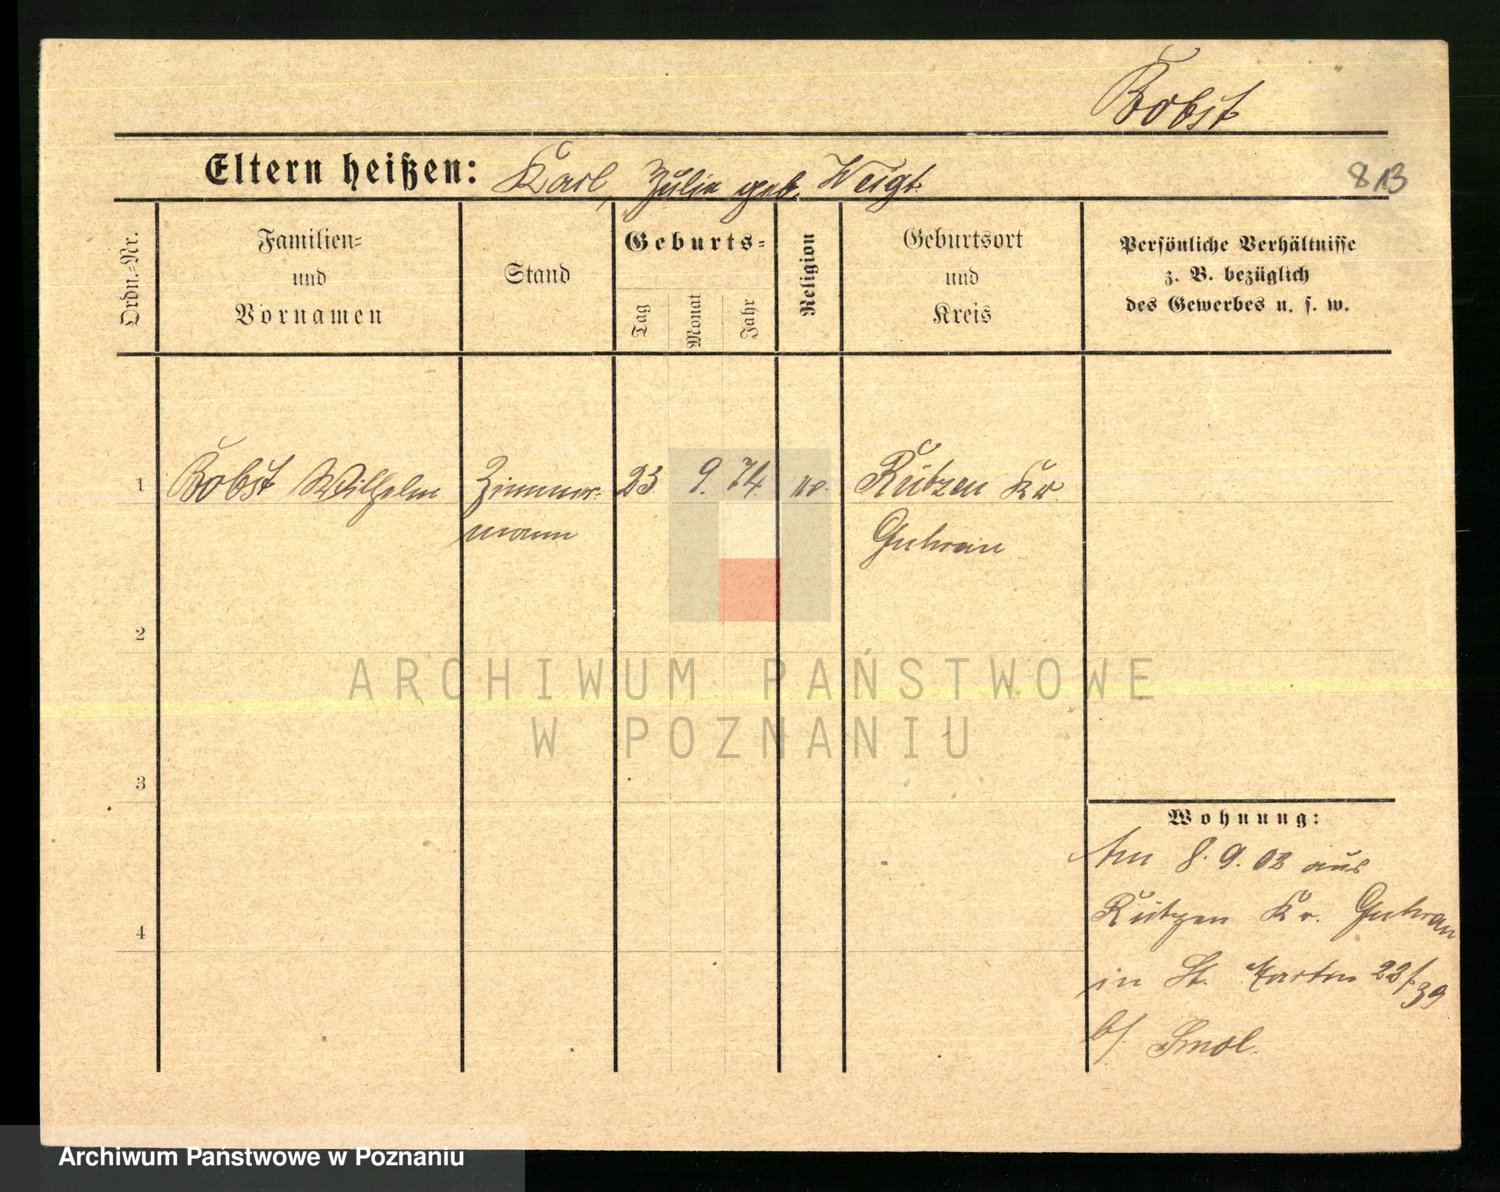 Bobst
Eltern heißen: Karl, Julie geb. Weigt.
813
Ordn.=Nr.
Familien=
und
Vornamen
Stand
Geburts=
Tag
Monat
Jahr
Religion
Geburtsort
und
Kreis
Persönliche Verhältnisse
z. B. bezüglich
des Gewerbes u. s. w.
1 Bobst Wilhelm Zimmer- 23 9. 74. Rützen Kr
mann Guhrau
2
ARCHIWUM PAŃSTWOWE
W POZNANIU
3
Wohnung:
Am 8. 9. 02 aus
Rützen Kr. Guhrau
in St. Martin 23/39
b/
4
Archiwum Państwowe w Poznaniu